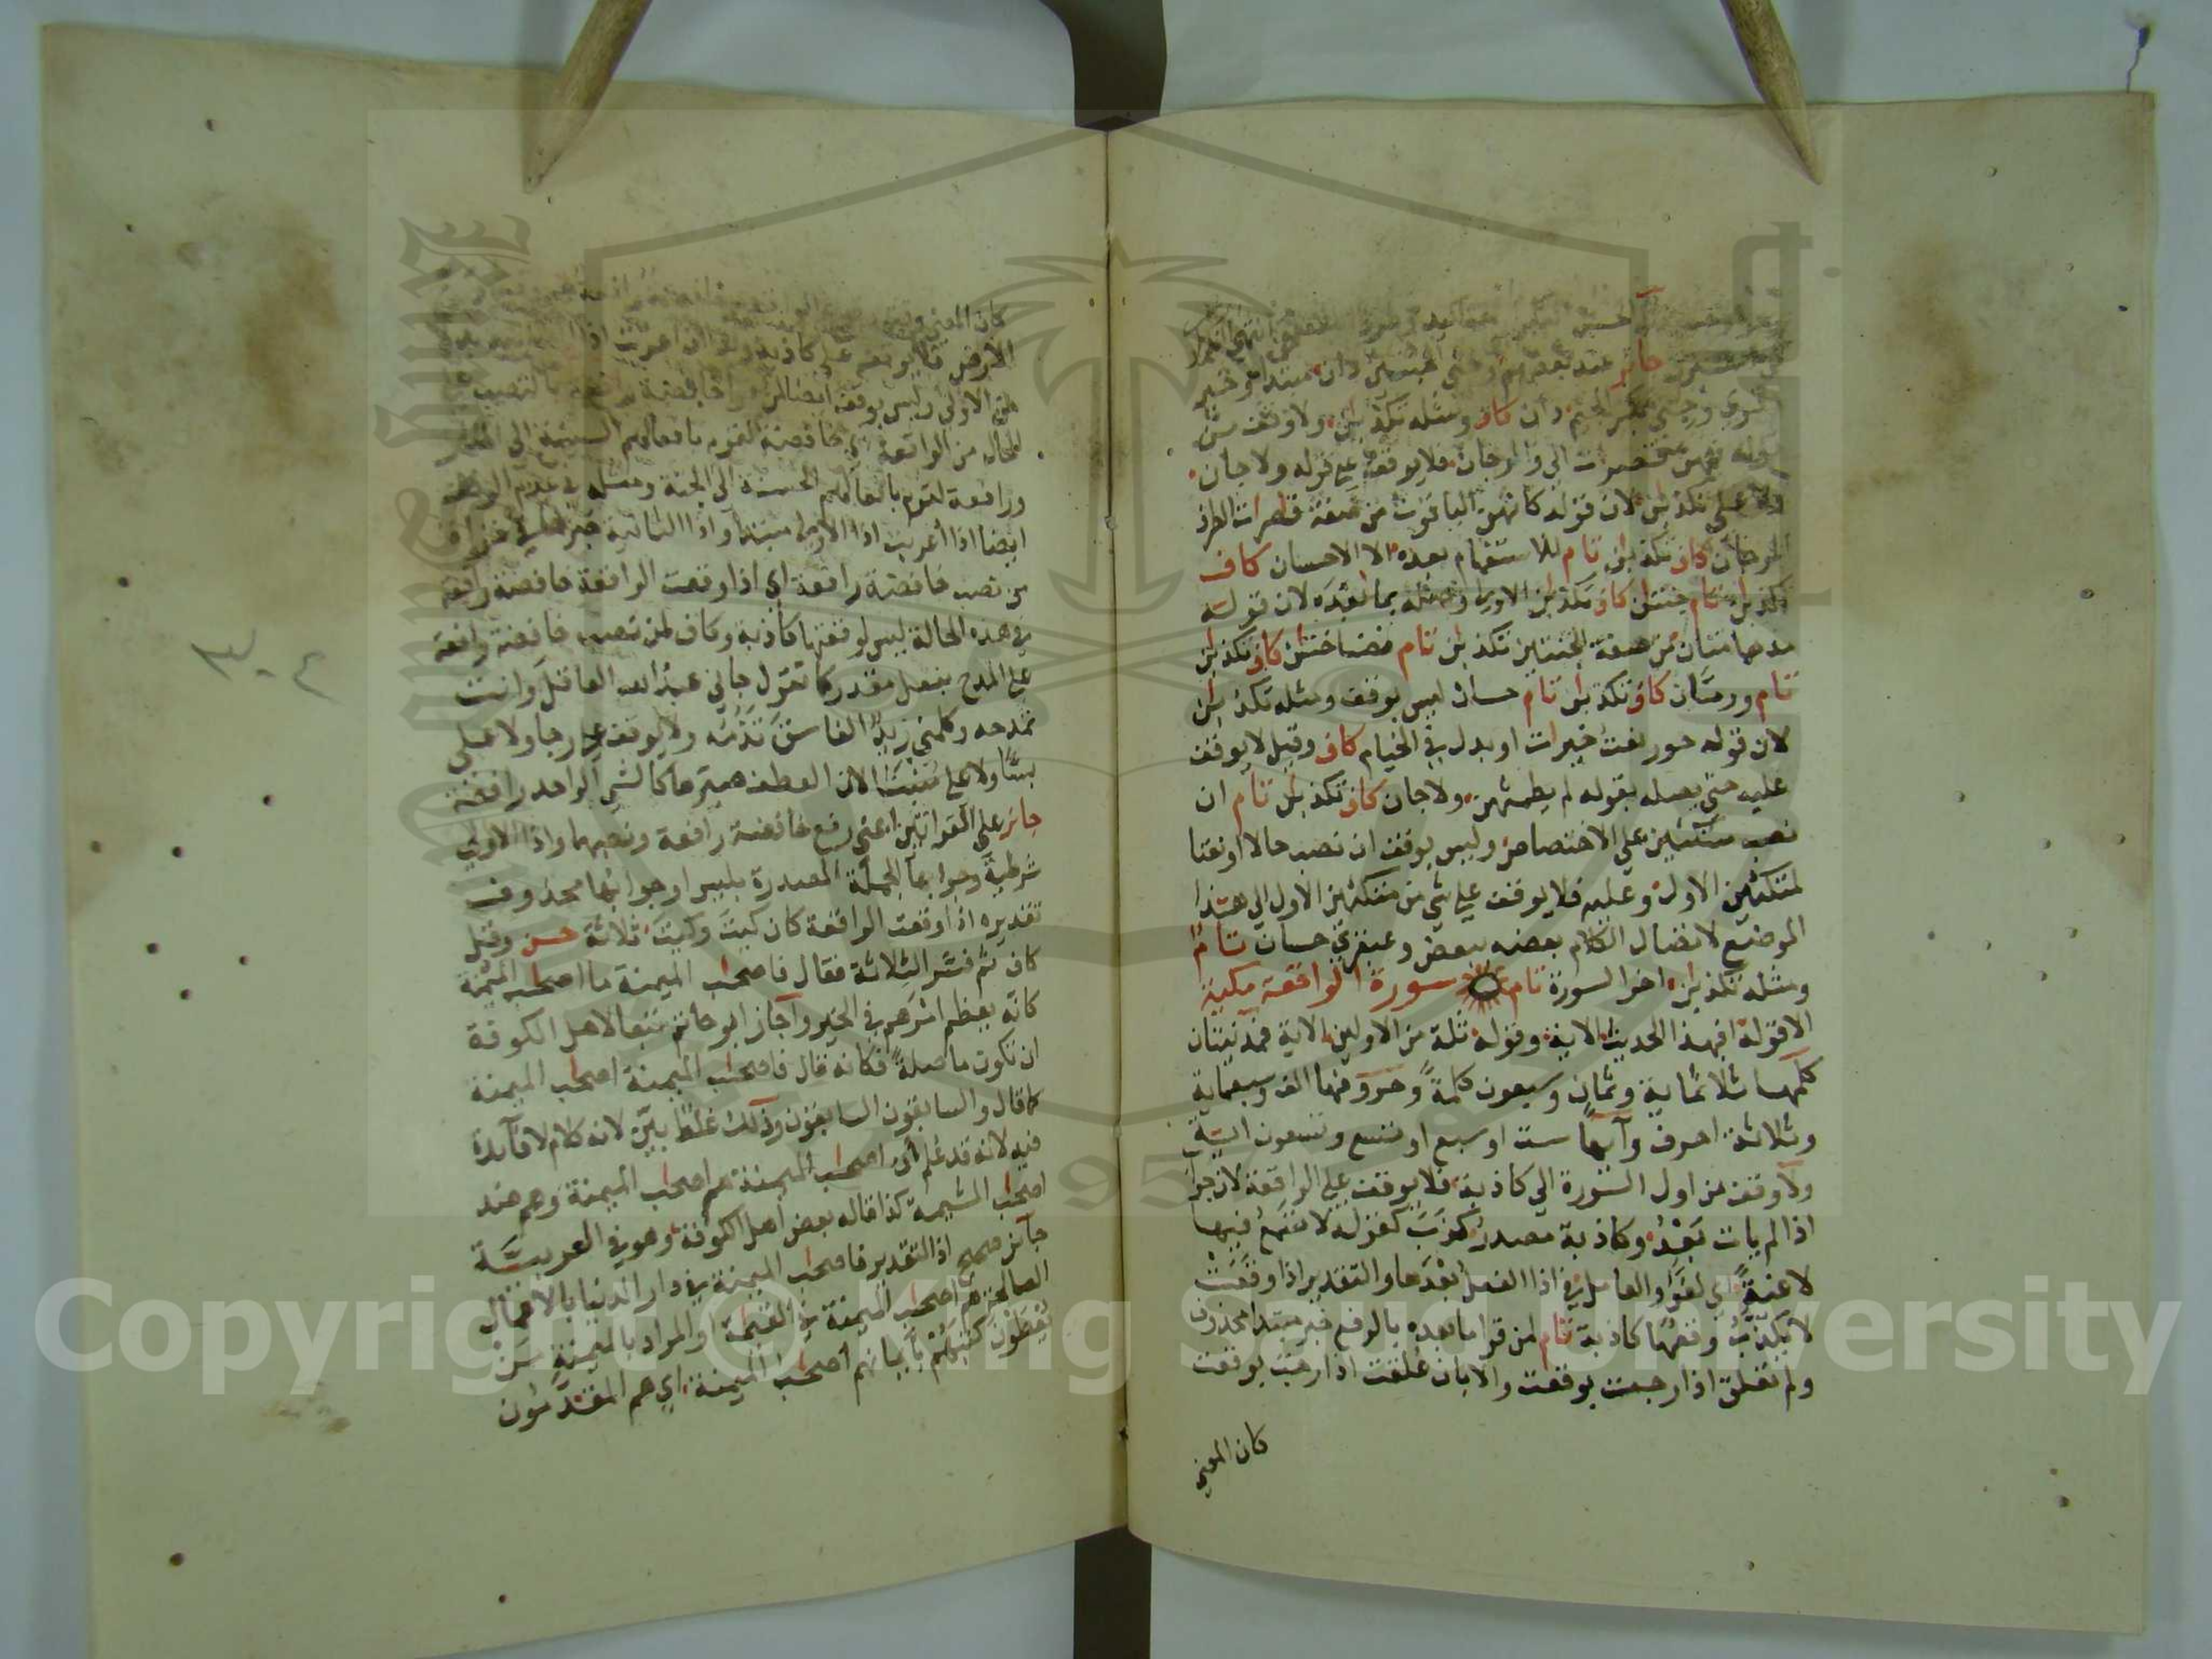 جائز عند بعضهم وجنى الجنتين دان مبتدا وخبر
دان كاف ومثله تكذبان ولا وقف من
قوله فيهن الى والمرجان فلا يوقف على قوله ولا جان
ولا على تكذبان لان قوله كانهن الياقوت من صفة قاصرات الطرف
والمرجان كاف تكذبان تام للاستفهام بعده الا الاحسان كاف
تكذبان تام جنتان كاف تكذبان الاولى وصله بما بعده لان قوله
مدهامتان من صفة الجنتين تكذبان تام نضاختان كاف تكذبان
تام ورمان كاف تكذبان تام حسان ليس بوقف ومثله تكذبان
لان قوله حور نعت خيرات او بدل في الخيام كاف وقيل لا يوقف
عليه حتى يصله بقوله لم يطمثهن ولا جان كاف تكذبان تام ان
نصب متكئين على الاختصاص وليس بوقف ان نصب حالا او نعتا
لمتكئين الاول وعليه فلا يوقف على شي من متكئين الاول الى هذا
الموضع لاتصال الكلام بعضه ببعض وعبقري حسان تام
ومثله تكذبان اخر السورة تام سورة الواقعة مكية
الا قوله افبهذا الحديث الاية وقوله ثلة من الاولين الاية فمدنيتان
كلمها ثلاثماية وثمان وسبعون كلمة وحروفها الف وسبعماية
وثلاثة احرف وآيها ست او سبع او تسع وتسعون اية
ولا وقف من اول السورة الى كاذبة فلا يوقف على الواقعة لان جواب
اذا لم يات بعد وكاذبة مصدر كذب كقوله لا تسمع فيها
لاغية اي لغوا والعامل في اذا الفعل بعدها والتقدير اذا وقعت
لا يكذب وقعها كاذبة تام لمن قرا ما بعده بالرفع خبر مبتدا محذوف
ولم تعلق اذا رجت بوقعت والا بان علقت اذا رجت بوقعت
كان المعنى
كان المعنى
الارض فلا يوقف على كاذبة وان اعربت اذا
من الاولى وليس بوقف ايضا لمن قرا خافضة رافعة بالنصب على
الحال من الواقعة اي خافضة لقوم بافعالهم السيئة الى النار
ورافعة لقوم بافعالهم الحسنة الى الجنة ومثله في عدم الوقف
ايضا اذا اعربت اذا الاولى مبتدا واذا الثانية خبرها في قراءة
من نصب خافضة رافعة اي اذا وقعت الواقعة خافضة رافعة
في هذه الحالة ليس لوقعتها كاذبة وكاف لمن نصب خافضة رافعة
على المدح بفعل مقدر كما تقول جاني عبد الله العاقل وانت
تمدحه وكلمني زيد الفاسق تذمه ولا يوقف على رجا ولا على
بسا ولا على منبثا لان العطف صيرها كالشي الواحد رافعة
جائز على القراتين اعني رفع خافضة رافعة ونصبهما واذا الاولى
شرطية وجوابها الجملة المصدرة بليس او جوابها محذوف
تقديره اذا وقعت الواقعة كان كيت وكيت ثلاثة حسن وقيل
كاف ثم فسر الثلاثة فقال فاصحاب الميمنة ما اصحاب الميمنة
كانه يعظم امرهم في الخير واجاز ابو حاتم تبعا لاهل الكوفة
ان تكون ما صلة فكانه قال فاصحاب الميمنة اصحاب الميمنة
كما قال والسابقون السابقون وذلك غلط بين لانه كلام لا فائدة
فيه لانه قد علم ان اصحاب الميمنة هم اصحاب الميمنة وهم ضد
اصحاب المشيمة كذا قاله بعض اهل الكوفة وهو في العربية
جائز صحيح اذ التقدير فاصحاب الميمنة في دار الدنيا بالاعمال
الصالحة هم اصحاب الميمنة في القيمة او المراد بالميمنة من
يعطون كتبهم بايمانهم اصحاب الميمنة اي هم المقدمون